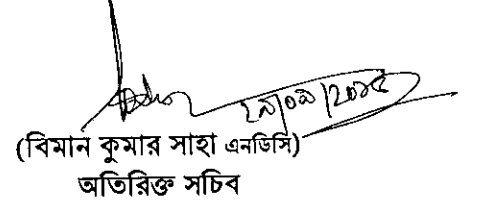 ২৯/০৯/২০১৫
(বিমান কুমার সাহা এনডিসি)
অতিরিক্ত সচিব